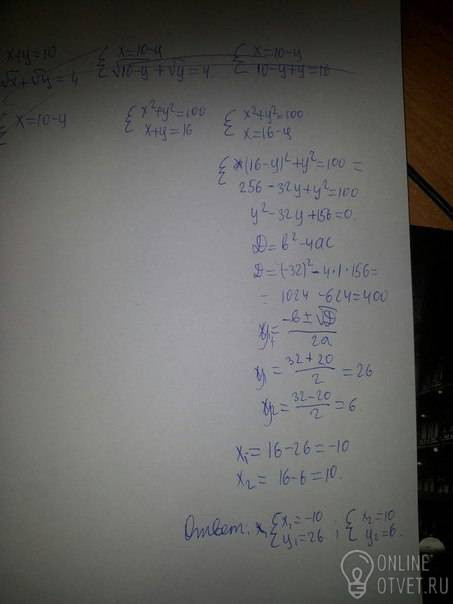 x+y=10 { x=10-y { x=10-y
√x+√y=4 √10-y+√y=4 10-y+y=16
{ x=10-y { x²+y²=100 { x²+y²=100
x+y=16 x=16-y
{ (16-y)²+y²=100 =
256-32y+y²=100
y²-32y+156=0.
D=b²-4ac
D=(-32)²-4·1·156=
= 1024-624=400
y₁=-b±√D/2a
y=32+20/2=26
y₂=32-20/2=6
x₁=16-26=-10
x₂=16-6=10.
Ответ: { x₁=-10 ; { x₂=10
y₁=26 y₂=6.
ONLINE
OTVET.RU